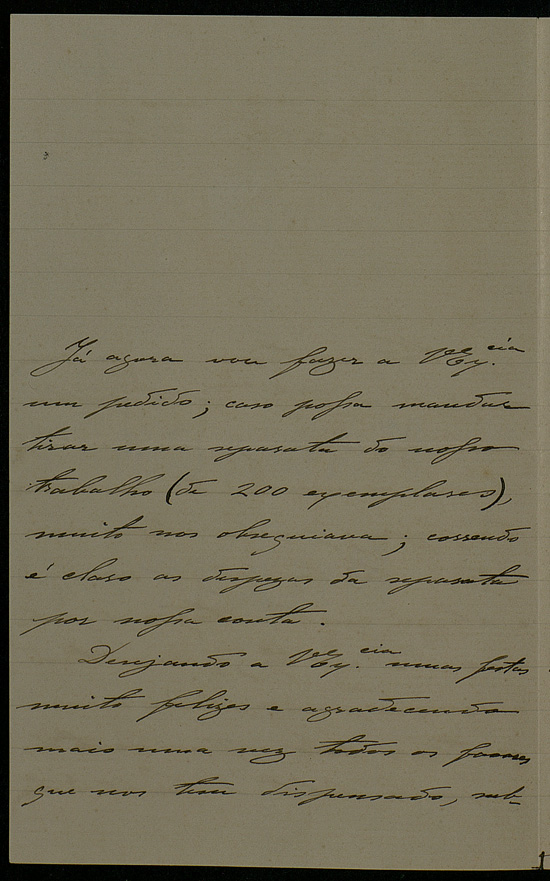 Já agora vou fazer a V. Ex.cia
um pedido; caso possa mandar
tirar uma separata do nosso
trabalho (de 200 exemplares),
muito nos obsequiava; correndo
é claro as despezas da separata
por nossa conta.
Desejando a V. Ex.cia umas festas
muito felizes e agradecendo
mais uma vez todos os favores
que nos tem dispensado, sub-